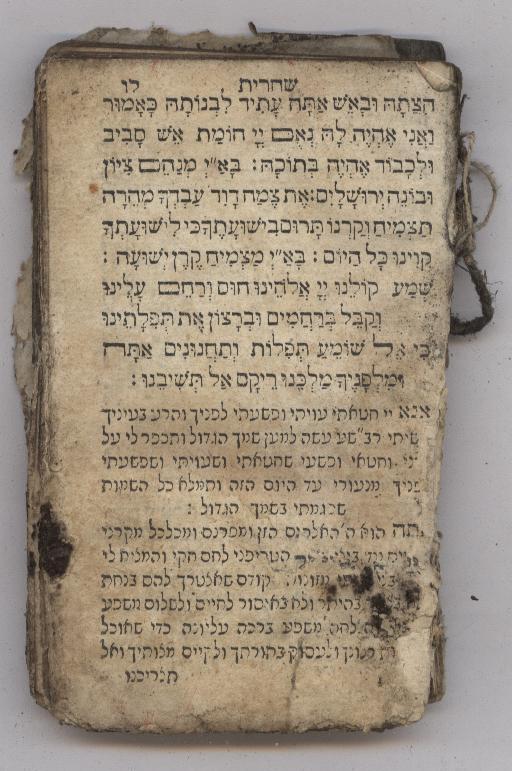 שחרית לו
הצתה ובאש אתה עתיד לבנותה כאמור
ואני אהיה לה נאם יי חומת אש סביב
ולכבוד אהיה בתוכה: בא״י מנחם ציון
ובונה ירושלים: את צמח דוד עבדך מהרה
תצמיח וקרנו תרום בישועתך כי לישועתך
קוינו כל היום: בא״י מצמיח קרן ישועה:
שמע קולנו יי אלהינו חוס ורחם עלינו
וקבל ברחמים וברצון את תפלתינו
כי אל שומע תפלות ותחנונים אתה
ומלפניך מלכנו ריקם אל תשיבנו:
אנא יי חטאתי עויתי ופשעתי לפניך והרע בעיניך
רב״שע עשה למען שמך הגדול ותכפר לי על
וחטאי ופשעי שחטאתי ושעויתי ושפשעתי
מנעורי עד היום הזה ותמלא כל השמות
שפגמתי בשמך הגדול:
אתה הוא ה׳ האלהים הזן ומפרנס ומכלכל מקרני
הטריפני לחם חקי והמציא לי
קודם שאצטרך להם בנחת
בהיתר ולא באיסור לחיים ולשלום משפע
משפע ברכה עליונה כדי שאוכל
רצונך ולעסוק בתורתך ולקיים מצותיך ואל
תצריכנו